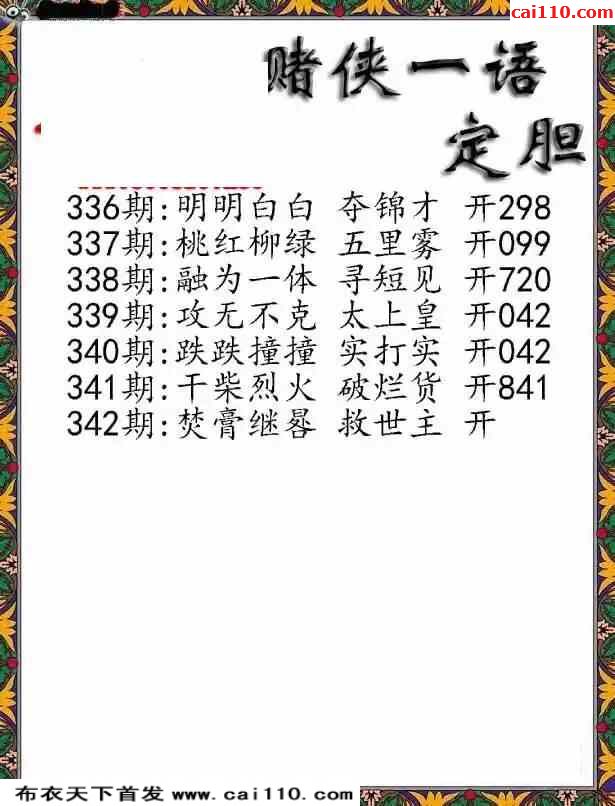 cai110.com
赌侠一语
定胆
336期:明明白白 夺锦才 开298
337期:桃红柳绿 五里雾 开099
338期:融为一体 寻短见 开720
339期:攻无不克 太上皇 开042
340期:跌跌撞撞 实打实 开042
341期:干柴烈火 破烂货 开841
342期:焚膏继晷 救世主 开
布衣天下首发 www.cai110.com